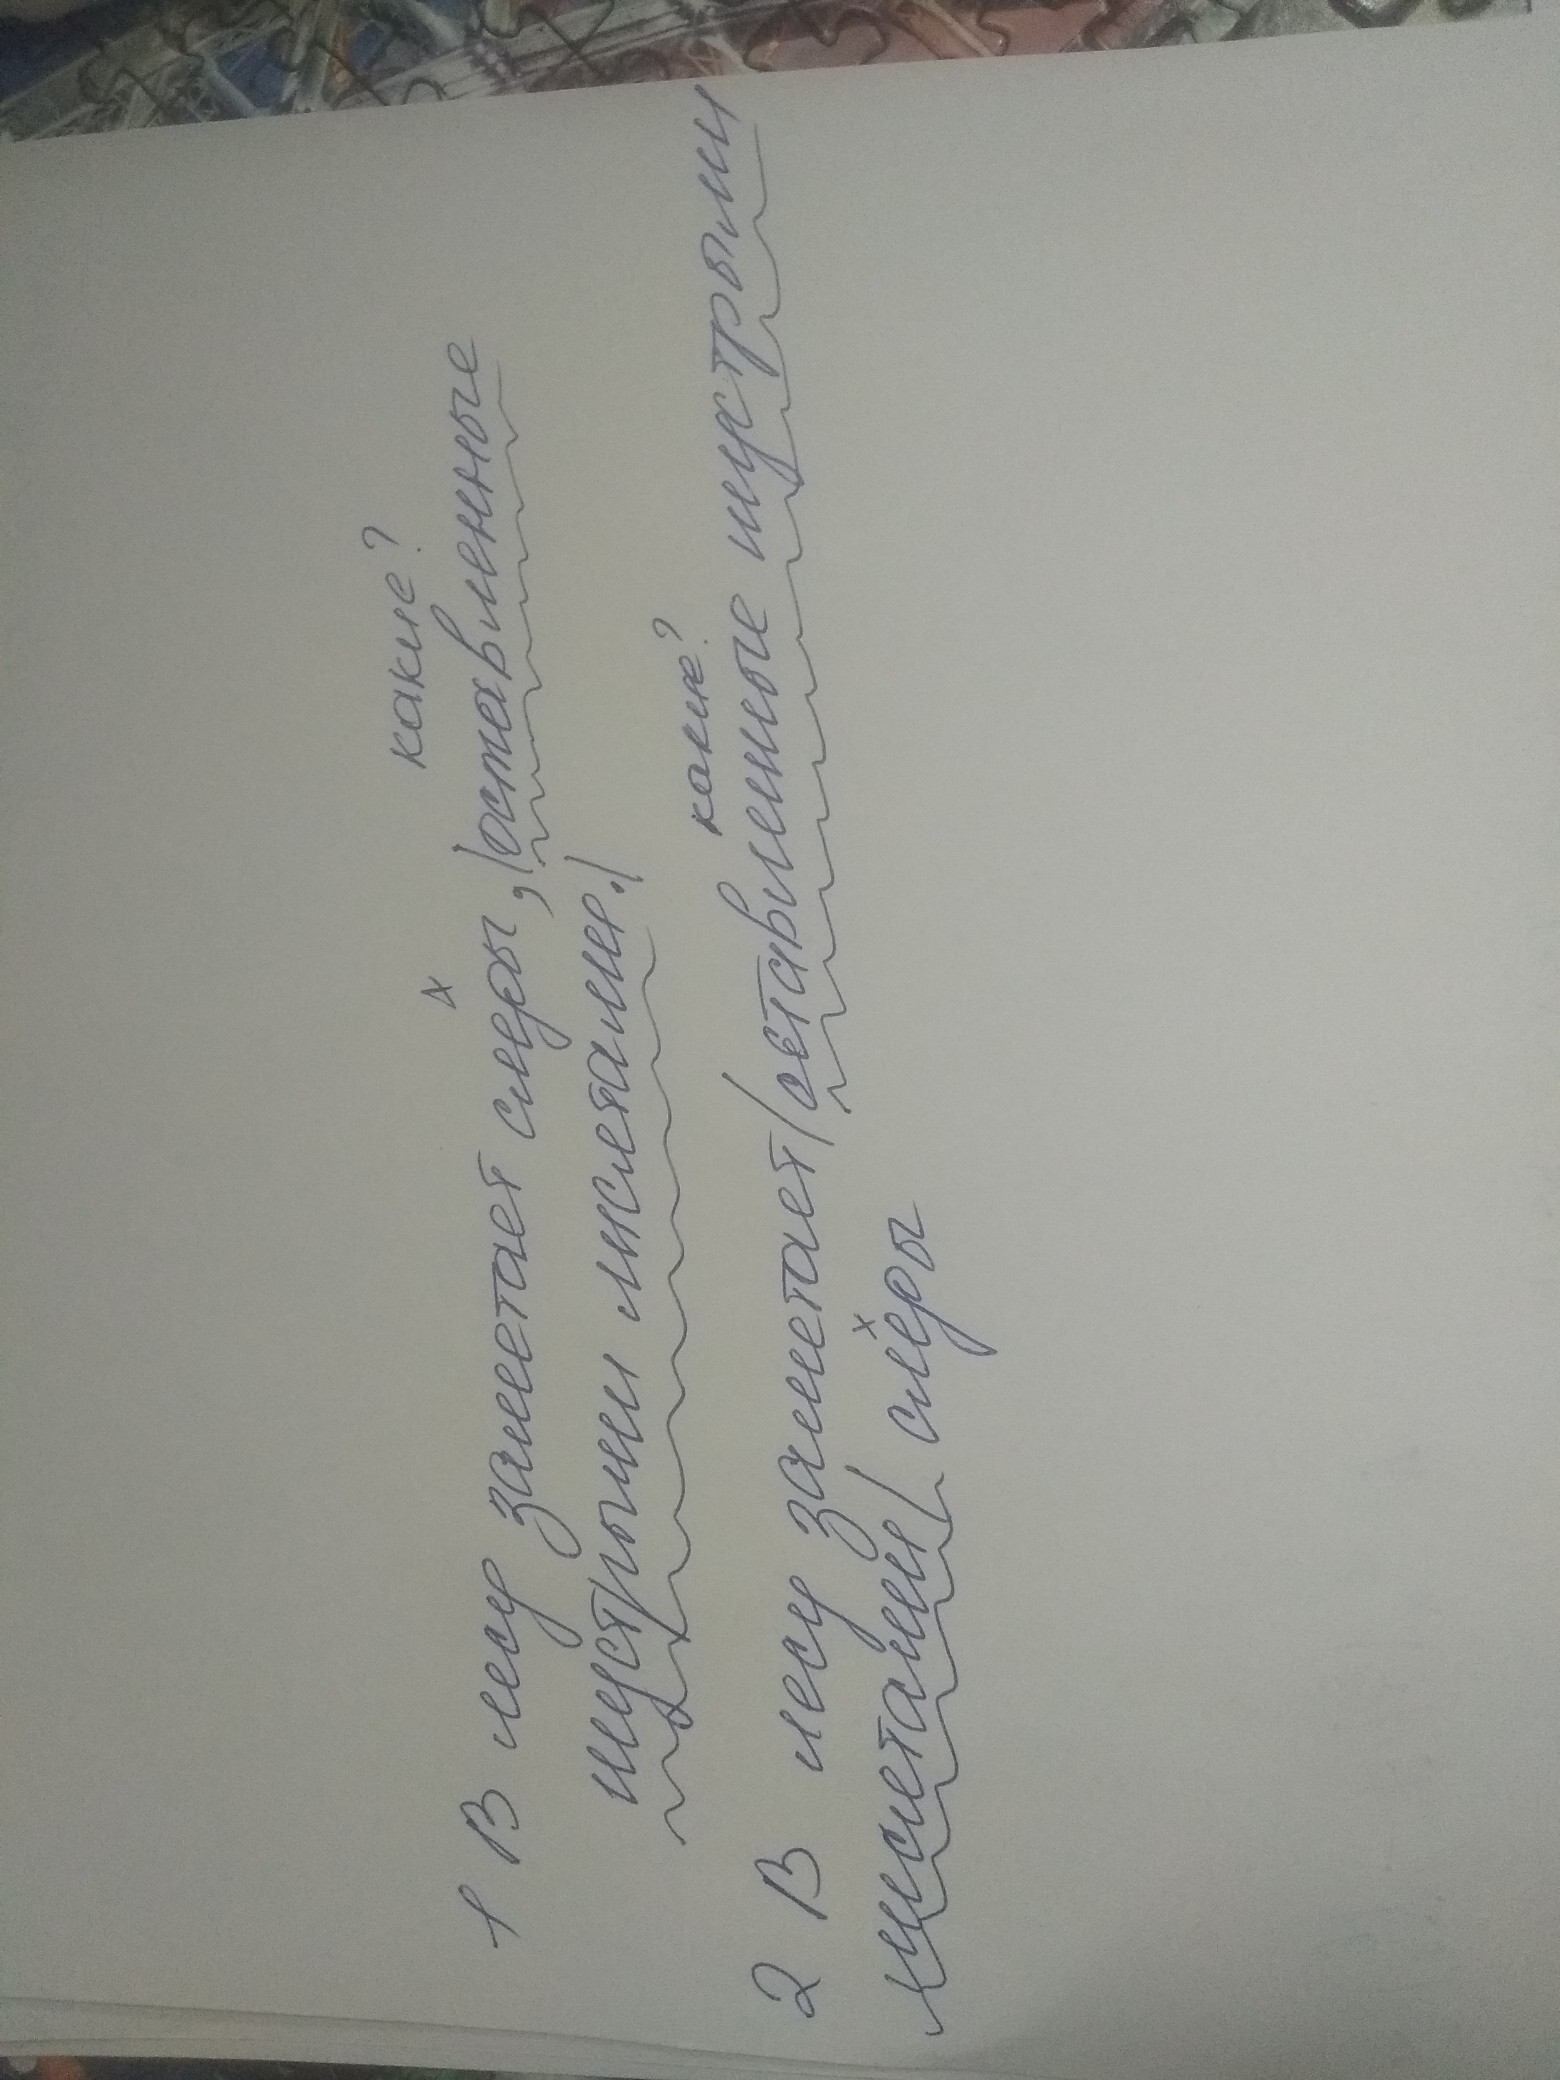 какие?
1 В лесу заметает следы, |оставленные
шустрыми лисетами.|
какие?
2 В лесу заметает |оставленные шустрыми
лисетами| следы